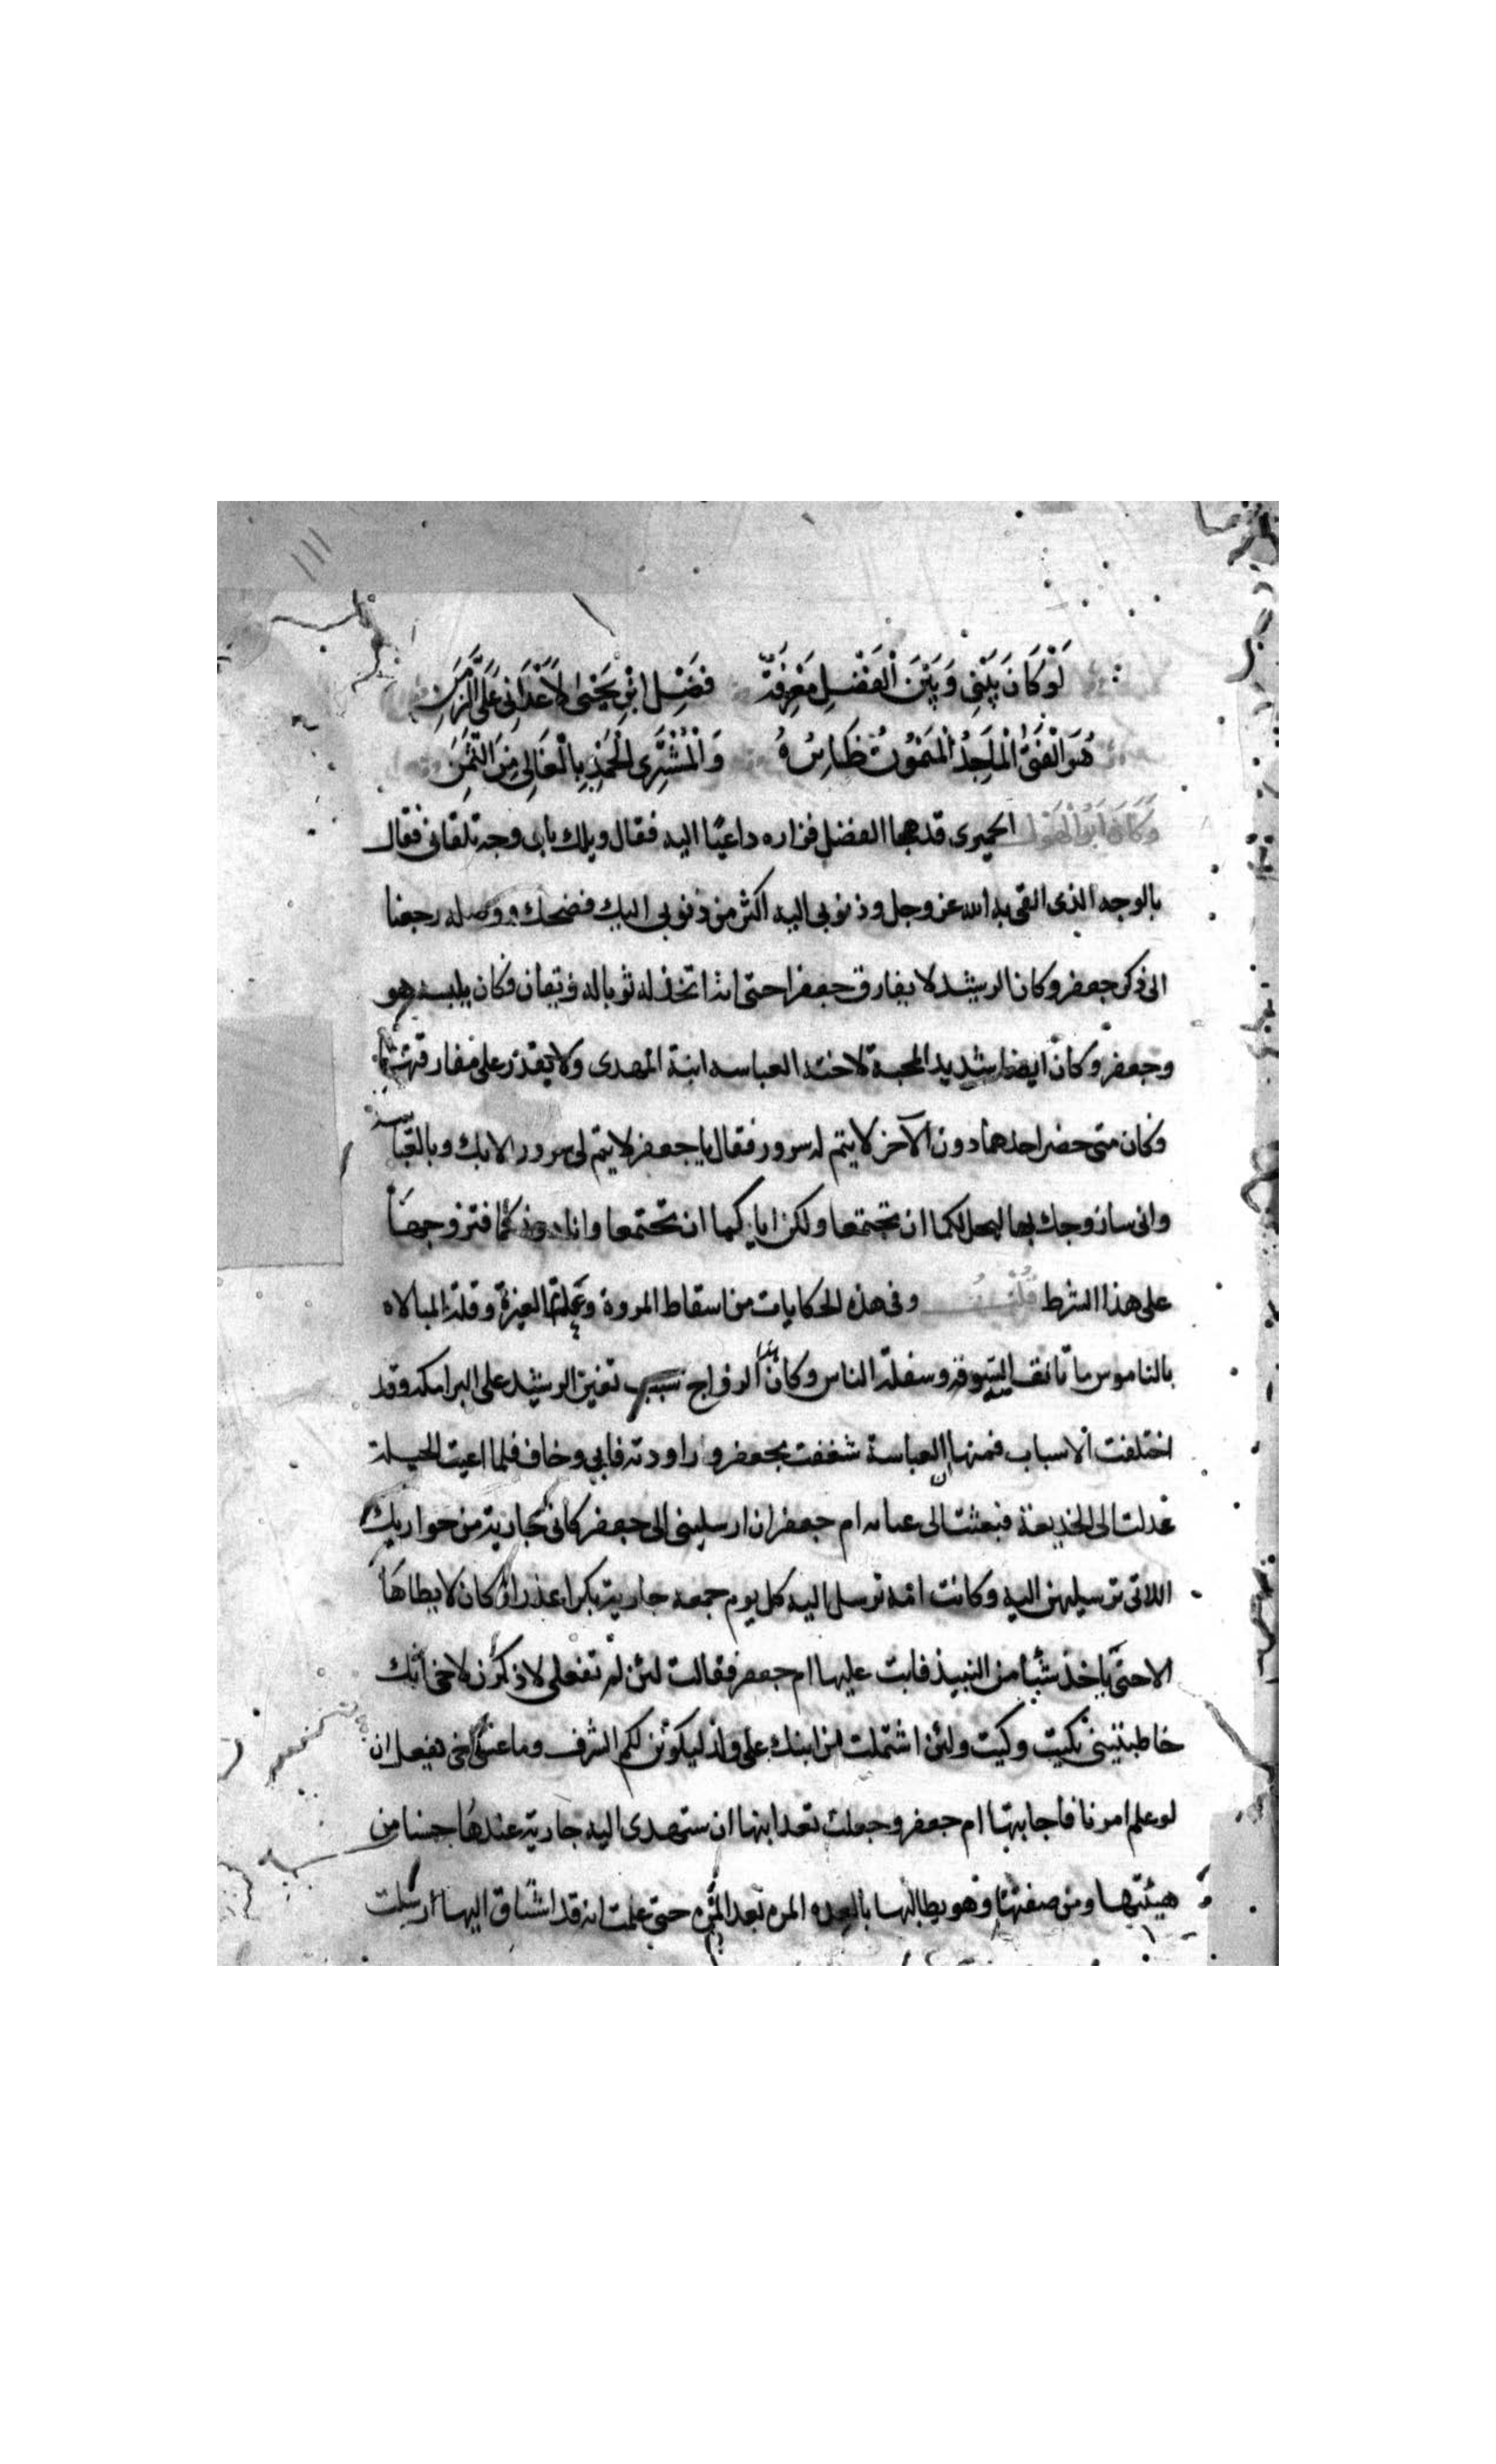 ١١١
لَوْ كَانَ بَيْنِى وَبَيْنَ الْفَضْلِ مَعْرِفَةٌ فَضْلِ ابْنِ يَحْيَى لَأَعْدَانِى عَلَى الزَّمَنِ
هُوَ الْفَتَى الْمَاجِدُ الْمَيْمُونُ طَائِرُهُ وَالْمُشْتَرِى الْحَمْدِ بِالْغَالِى مِنَ الثَّمَنِ
وَكَانَ اَبُو الْهَوْل الحميرى قد هجا الفضل فزاره داعيًا اليه فقال ويلك باى وجه تلقانى فقال
بالوجه الذى القى به الله عز وجل وذنوبى اليه اكثر من ذنوبى اليك فضحك ووصله رجعنا
الى ذكر جعفر وكان الرشيد لا يفارق جعفرا حتى اذا اتخذ له ثوبا له زيقان فكان يلبسه هو
وجعفر وكان ايضا شديد المحبة لاخته العباسه ابنة المهدى ولا يقدر على مفارقتها
وكان متى حضر احدهما دون الآخر لا يتم له سرور فقال يا جعفر لا يتم لى سرور الا بك وبالعباسه
وانى سازوجك بها ليحل لكما ان تجتمعا ولكن اياكما ان تجتمعا وانا دونكما فتزوجها
على هذا الشرط قُلْتُ وفى هذه الحكايات من اسقاط المروة وقلة الغيرة وقلة المبالاه
بالناموس ما تانف السوقه وسفلة الناس وكان هذا الزواج سبب تغير الرشيد على البرامكه وقد
اختلفت الاسباب فمنها ان العباسة شغفت بجعفر وراودته فابى وخاف فلما اعيت الحيلة
عدلت الى الخديعة فبعثت الى ام جعفر ان ارسلينى الى جعفر كانى جارية من جواريك
اللاتى ترسيلهن اليه وكانت امه ترسل اليه كل يوم جمعه جارية بكرا عذرا وكان لا يطاها
الا حتى ياخذ شيا من النبيذ فابت عليها ام جعفر فقالت لئن لم تفعلى لاذكرن لاخى انك
خاطبتينى بكيت وكيت ولئن اشتملت من ابنك على ولد ليكونن لكم الشرف وما عسى اخى يفعل ان
لو علم امرنا فاجابتها ام جعفر وجعلت تعد ابنها ان ستهدى اليه جارية عندها حسنا من
هيئتها ومن صفتها وهو يطالبها بالعده المره بعد المره حتى علمت انه قد اشتاق اليها ارسلت